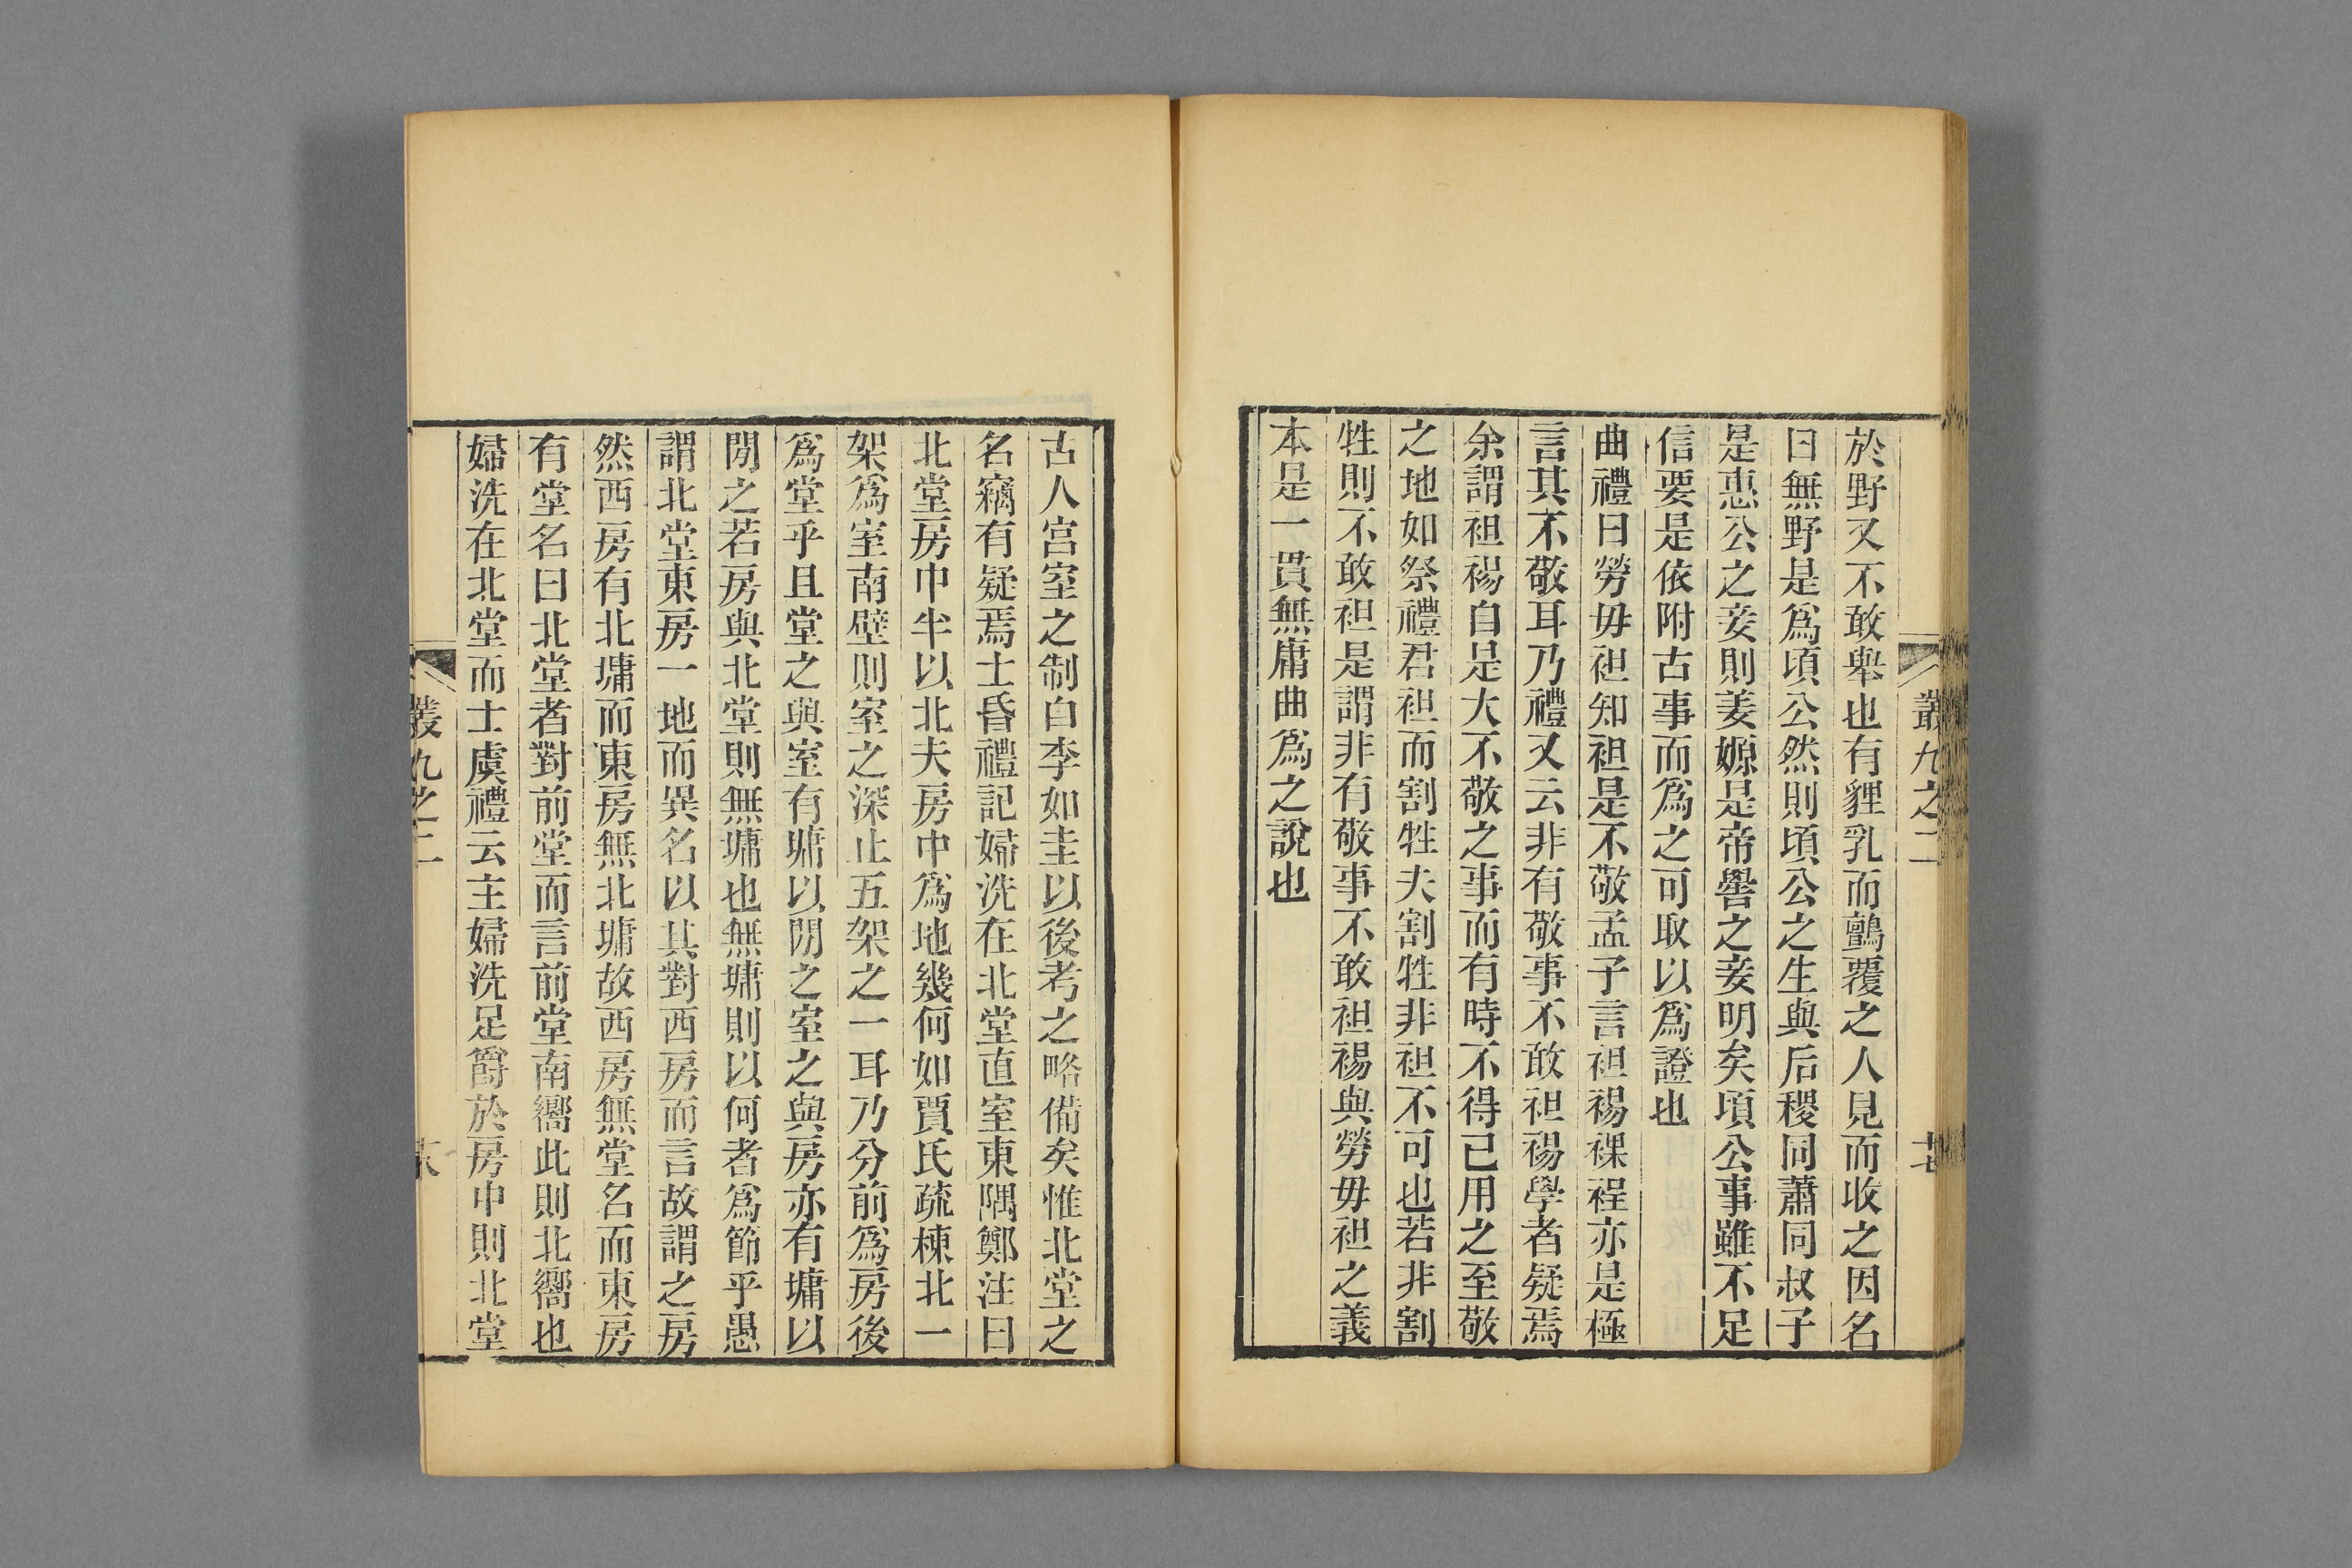 於野又不敢舉也有貍乳而鸇覆之人見而收之因名
曰無野是爲頃公然則頃公之生與后稷同蕭同叔子
是惠公之妾則姜嫄是帝嚳之妾明矣頃公事雖不足
信要是依附古事而爲之可取以爲證也
曲禮曰勞毋袒知袒是不敬孟子言袒裼裸裎亦是極
言其不敬耳乃禮又云非有敬事不敢袒裼學者疑焉
余謂袒裼自是大不敬之事而有時不得已用之至敬
之地如祭禮君袒而割牲夫割牲非袒不可也若非割
牲則不敢袒是謂非有敬事不敢袒裼與勞毋袒之義
本是一貫無庸曲爲之說也
叢九之二
十七
古人宮室之制自李如圭以後考之略備矣惟北堂之
名竊有疑焉士昏禮記婦洗在北堂直室東隅鄭注曰
北堂房中半以北夫房中爲地幾何如賈氏疏棟北一
架爲室南壁則室之深止五架之一耳乃分前爲房後
爲堂乎且堂之與室有墉以閒之室之與房亦有墉以
閒之若房與北堂則無墉也無墉則以何者爲節乎愚
謂北堂東房一地而異名以其對西房而言故謂之房
然西房有北墉而東房無北墉故西房無堂名而東房
有堂名曰北堂者對前堂而言前堂南嚮此則北嚮也
婦洗在北堂而士虞禮云主婦洗足爵於房中則北堂
叢九之二